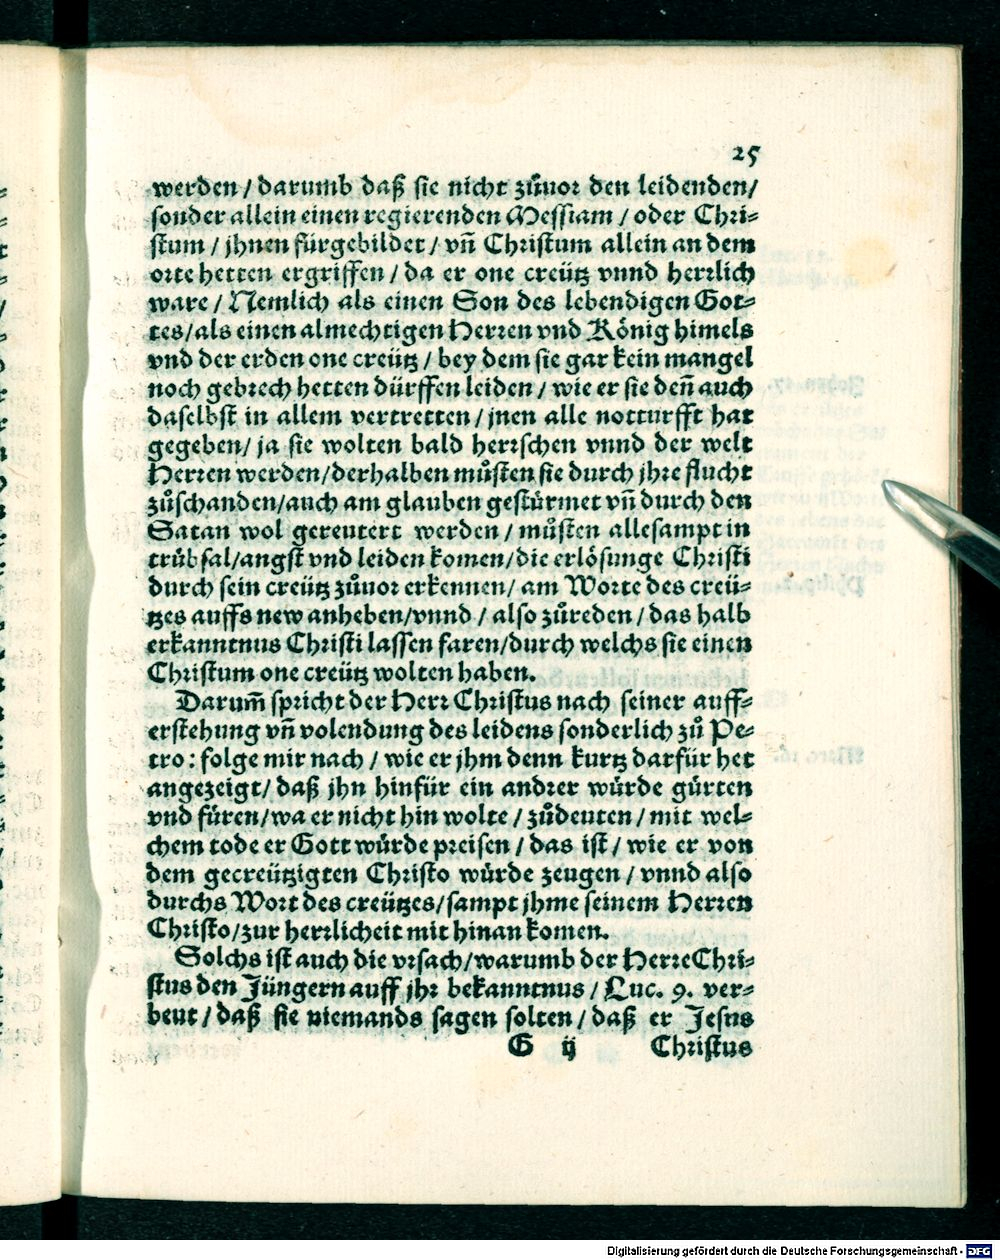 25
werden / darumb daß sie nicht zůuor den leidenden /
sonder allein einen regierenden Messiam / oder Chri⸗
stum / jhnen fürgebildet / vñ Christum allein an dem
orte hetten ergriffen / da er one creütz vnnd herrlich
ware / Nemlich als einen Son des lebendigen Got⸗
tes / als einen almechtigen Herren vnd König himels
vnd der erden one creütz / bey dem sie gar kein mangel
noch gebrech hetten dürffen leiden / wie er sie deñ auch
daselbst in allem vertretten / jnen alle notturfft hat
gegeben / ja sie wolten bald herrschen vnnd der welt
Herren werden / derhalben můsten sie durch jhre flucht
zůschanden / auch am glauben gestürmet vñ durch den
Satan wol gereutert werden / můsten allesampt in
trübsal / angst vnd leiden komen / die erlösunge Christi
durch sein creütz zůuor erkennen / am Worte des creü⸗
tzes auffs new anheben / vnnd / also zůreden / das halb
erkanntnus Christi lassen faren / durch welchs sie einen
Christum one creütz wolten haben.
Darum̃ spricht der Herr Christus nach seiner auff⸗
erstehung vñ volendung des leidens sonderlich zů Pe⸗
tro : folge mir nach / wie er jhm denn kurtz darfür het
angezeigt / daß jhn hinfür ein andrer würde gürten
vnd füren / wa er nicht hin wolte / zůdeuten / mit wel⸗
chem tode er Gott würde preisen / das ist / wie er von
dem gecreützigten Christo würde zeugen / vnnd also
durchs Wort des creützes / sampt jhme seinem Herren
Christo / zur herrlicheit mit hinan komen.
Solchs ist auch die vrsach / warumb der Herre Chri⸗
stus den Jüngern auff jhr bekanntnus / Luc. 9. ver⸗
beut / daß sie niemands sagen solten / daß er Jesus
G ij Christus
Digitalisierung gefördert durch die Deutsche Forschungsgemeinschaft - DFG